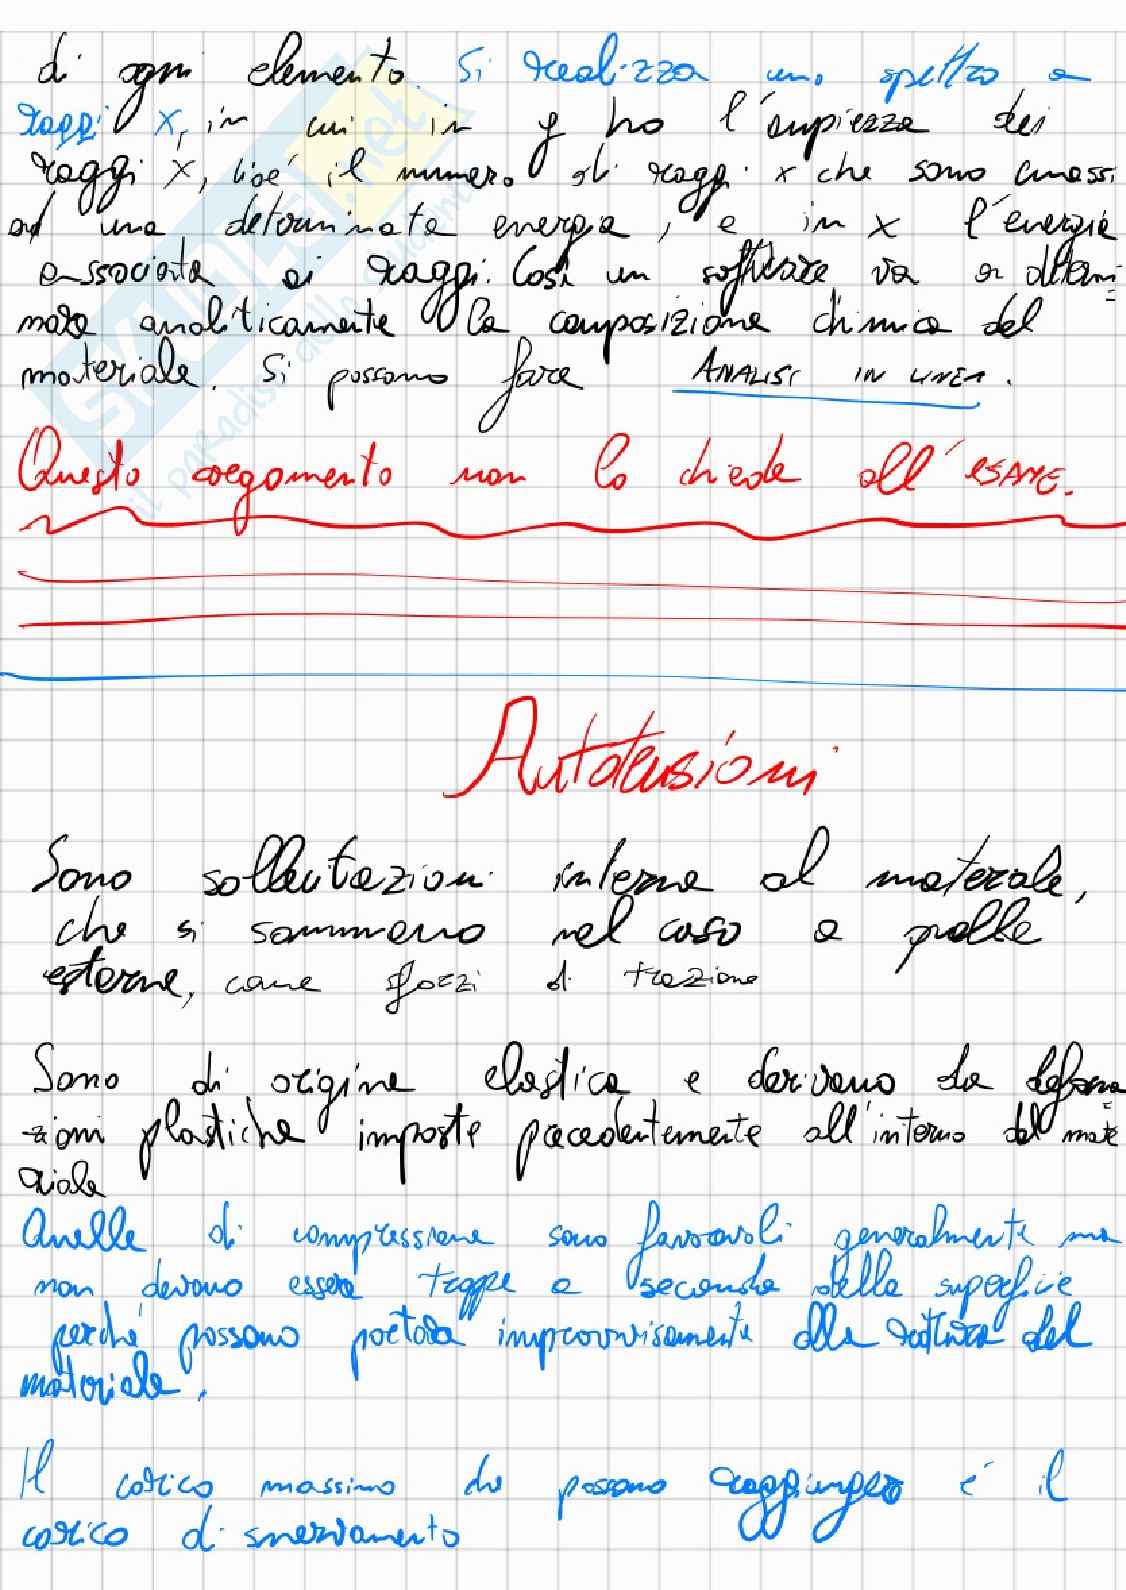 di ogni elemento. Si realizza uno spettro a
raggi X, in cui in y ho l'ampiezza dei
raggi X, cioé il numero di raggi x che sono emessi
ad una determinata energia, e in x l'energia
associata ai raggi. Così un software va a determi
nare analiticamente la composizione chimica del
materiale. Si possono fare ANALISI IN LINEA.
Questo argomento non lo chiede all'ESAME.
Autotensioni
Sono sollecitazioni interne al materiale,
che si sommano nel caso a quelle
esterne, come sforzi di trazione
Sono di origine elastica e derivano da deforma
zioni plastiche imposte precedentemente all'interno del mate
riale
Quelle di compressione sono favorevoli generalmente ma
non devono essere troppe a seconda della superficie
perché possono portare improvvisamente alla rottura del
materiale.
Il carico massimo che possono raggiungere é il
carico di snervamento
SKUOLA.net
il paradiso dello studente